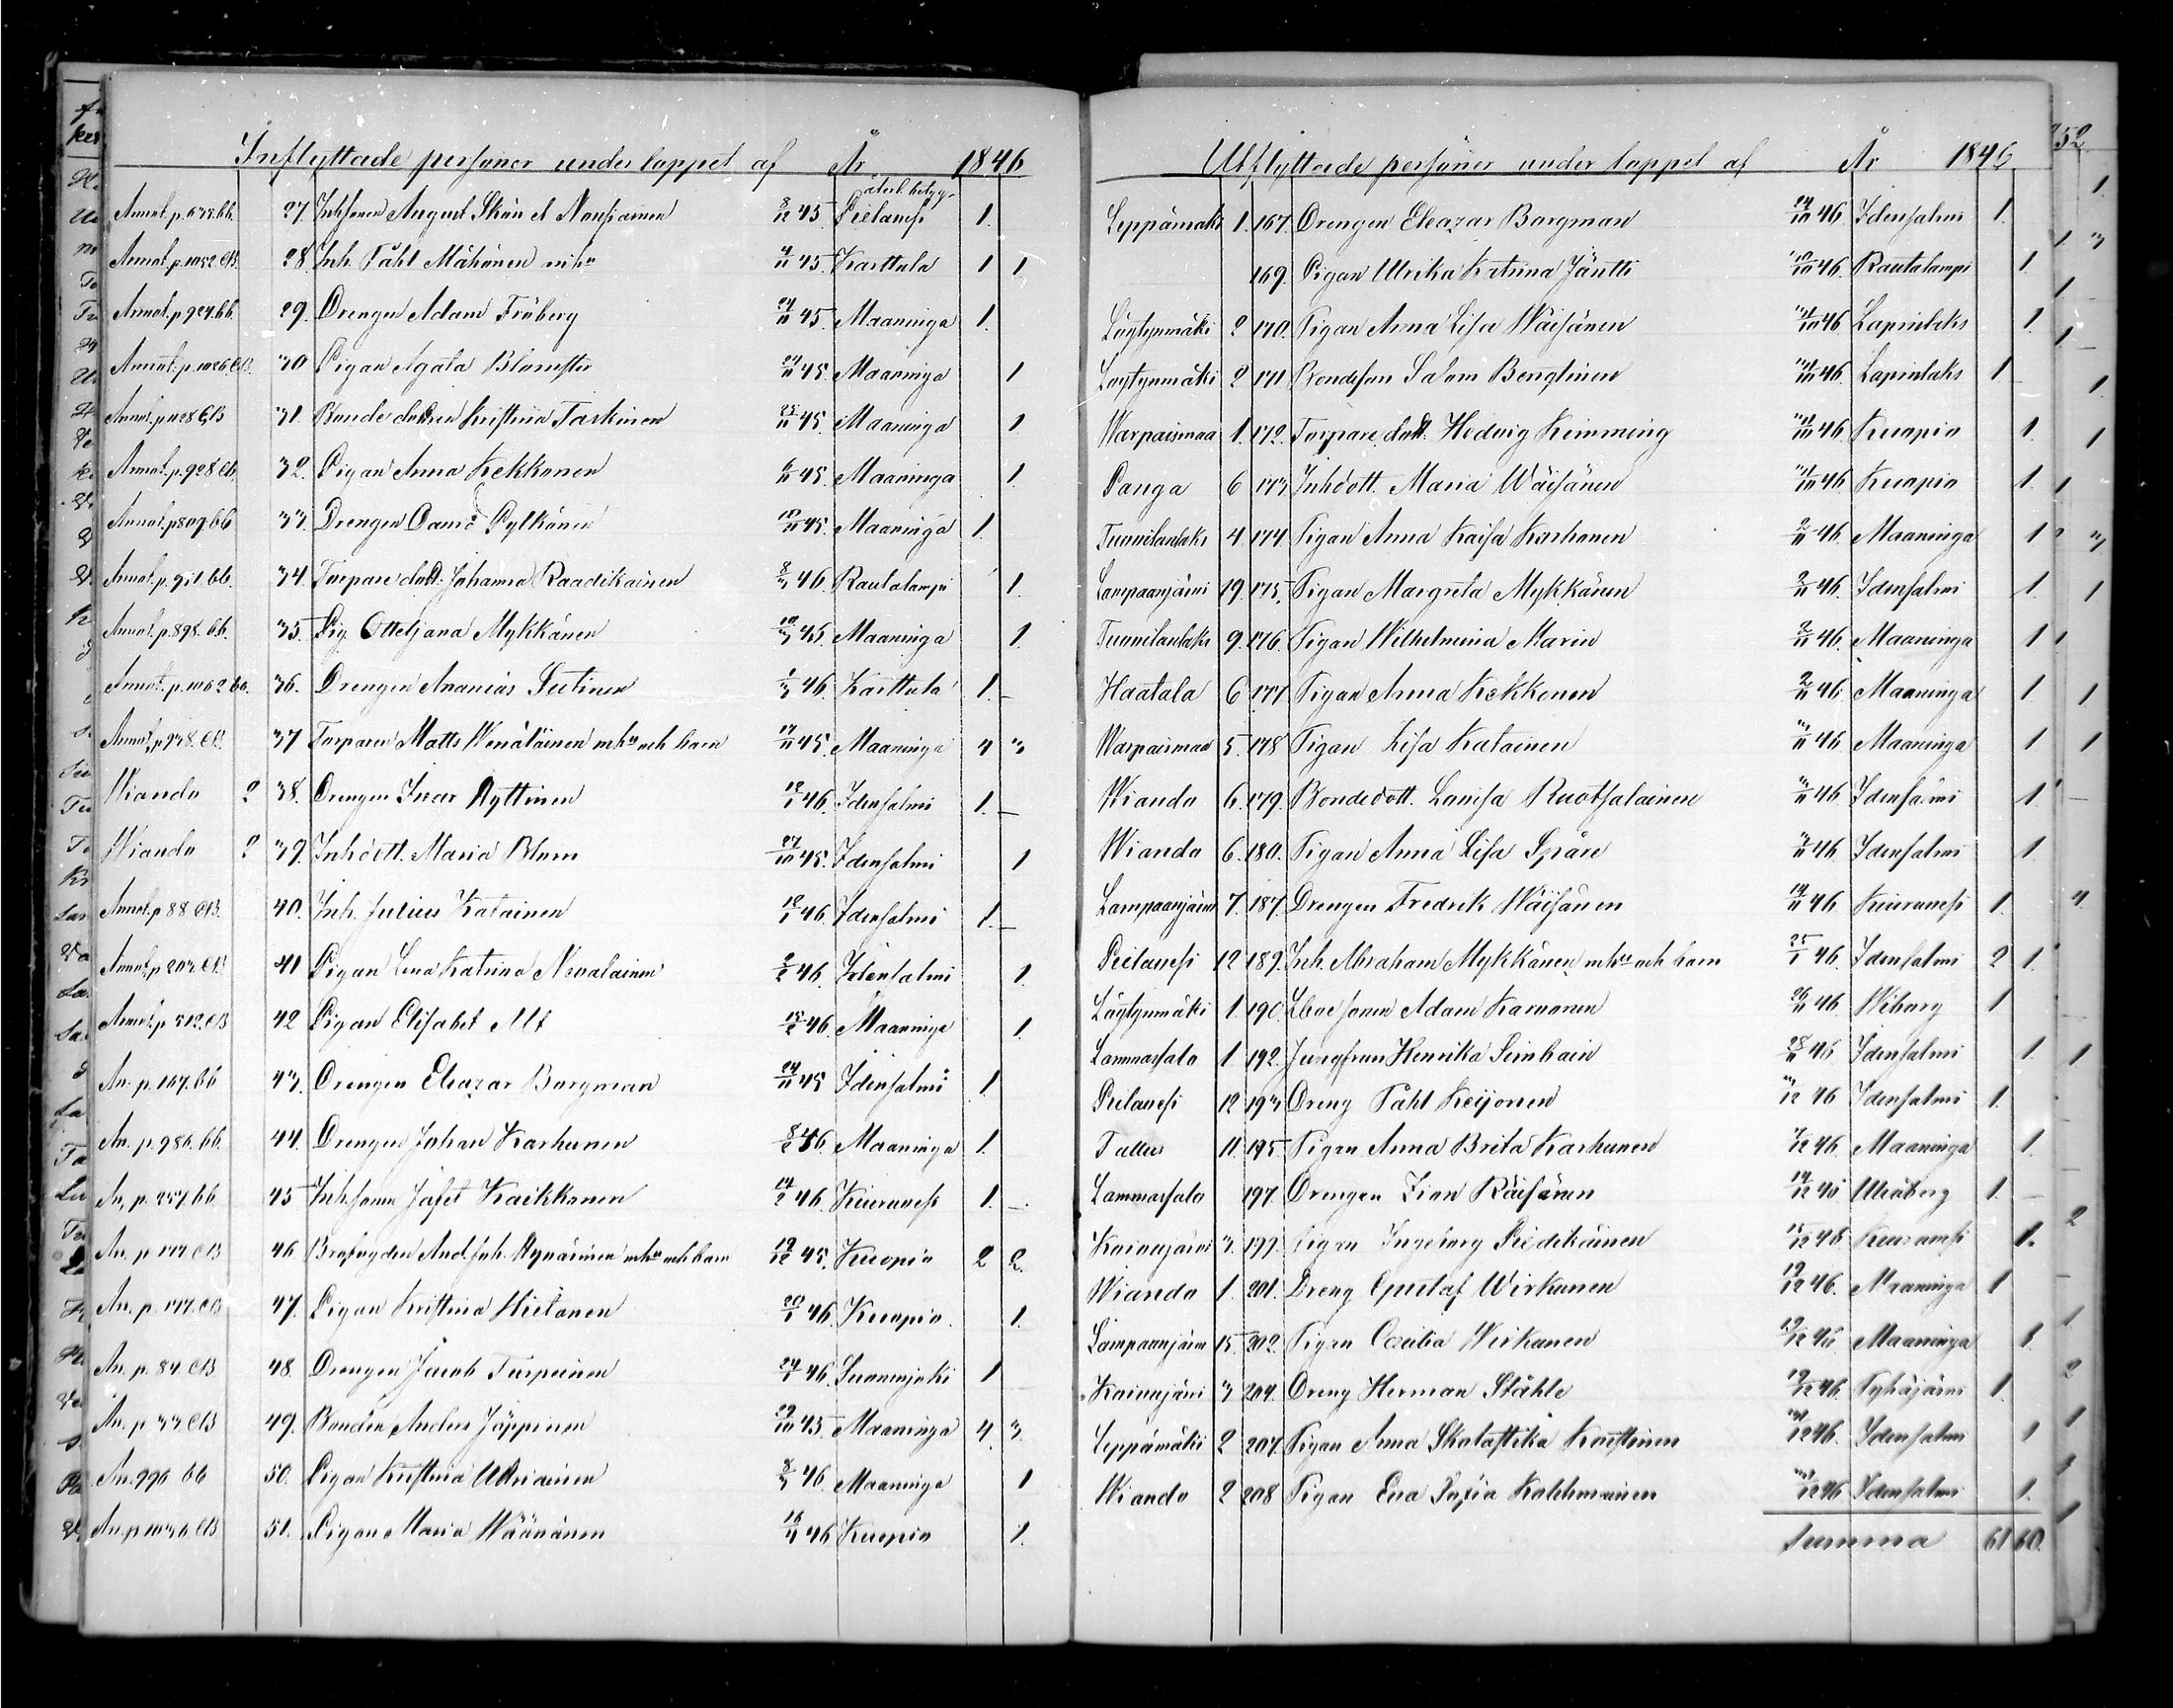 Inflyttade personer under loppet af År 1846
Annot. p. 675. bb. 27. Inhsonen August Skön el Nousiainen 8/12 45. Pielavesi återl. betyg. 1.
Annot. p. 1052. CB. 28. Inh. Påhl Mähönen mhu 4/11 45. Karttula 1 1
Annot. p. 924. bb. 29. Drengen Adam Fröberg 24/11 45. Maaninga 1.
Annot. p. 1026. CB. 30 Pigan Agata Blomster 24/11 45. Maaninga 1
Annot. p. 1128 CB 31. Bonde dottren Kristina Tarkinen 25/11 45. Maaninga 1.
Annot. p. 928 CB. 32. Pigan Anna Kekkonen 6/11 45. Maaninga 1.
Annot. p. 809. bb 33. Drengen Daniel Pylkönen 10/11 45. Maaninga 1.
Annot. p. 951. bb. 34. Torpare dott. Johanna Raadikainen 8/3 46. Rautalampi 1.
Annot. p. 898. bb. 35. Pig. Otteljana Mykkänen 10/3 45. Maaninga 1.
Annot. p. 1062 bb. 36. Drengen Ananias Sutinen 1/3 46. Karttula 1. –
Annot. p. 938. CB. 37 Torparen Matts Wenäläinen mhu och barn 17/11 45. Maaninga 4 3
Wiando ? 38. Drengen Ivar Ryttinen 18/1 46. Idensalmi 1. –
Wiando ? 39. Inhdott. Maria Blom 27/10 45. Idensalmi 1
Annot. p 88 CB. 40. Inh. Julius Katainen 18/1 46. Idensalmi 1. –
Annot. p 203. CB 41 Pigan Lena Katrina Nevalainen 2/2 46. Idensalmi 1.
Annot. p 512. CB 42 Pigan Elisabet Alt 15/2 46. Maaninga 1.
An. p. 107. bb 43. Drengen Eleazar Borgman 24/11 45 Idensalmi 1
An. p. 986. bb. 44. Drengen Johan Karhunen 8/2 46. Maaninga 1.
An. p. 257. bb 45 Inhsonen Jafet Kaikkonen 14/2 46. Kiuruvesi 1. –
An. p 177 CB 46 Brofogden And. Joh. Hynärinen mhu och barn 19/12 45. Kuopio 2 2.
An. p. 177. CB 47. Pigan Kristina Hietanen 20/1 46. Kuopio. 1.
An. p. 84 CB 48. Drengen Jacob Turpeinen 24/1 46. Suonenjoki 1
An. p 33 CB 49. Bonden Anders Jäppinen 29/10 45. Maaninga 4. 3.
An. 996 bb 50. Pigan Kristina Utriainen 8/3 46. Maaninga 1
An. p 1036 CB 51. Pigan Maria Väänänen 16/4 46 Kuopio 1.
Utflyttade personer under loppet af År 1846
Leppämäki 1. 167. Drengen Eleazar Borgman 24/10 46. Idensalmi 1.
169. Pigan Ulrika Katrina Jäntti 10/10 46. Rautalampi 1.
Löytynmäki 2 170. Pigan Anna Lisa Wäisänen 31/10 46 Lapinlaks 1.
Löytynmäki 2 171 Bondeson Salom Benglinen 31/10 46. Lapinlaks 1
Warpaismaa 1. 172. Torpare dott. Hedvig Kemming 31/10 46 Kuopio 1.
Panga 6 173 Inhdott. Maria Wäisänen 31/10 46. Kuopio 1.
Tuovilanlaks 4. 174. Pigan Anna Kaisa Karhonen 2/11 46. Maaninga 1
Lampaanjärvi 19. 175. Pigan Margreta Mykkänen 2/11 46. Idensalmi 1.
Tuovilanlaks 9. 176. Pigan Wilhelmina Marin 2/11 46. Maaninga 1
Haatala 6 177 Pigan Anna Kekkonen 2/11 46. Maaninga 1
Warpaismaa 5. 178 Pigan Lisa Katainen 3/11 46 Maaninga 1
Wiando 6. 179. Bondedott. Lovisa Ruotsalainen 3/11 46 Idensalmi 1
Wiando 6. 180. Pigan Anna Lisa Spåre 7/11 46 Idensalmi 1.
Lampaanjärvi 7. 187. Drengen Fredrik Wäisänen 14/11 46 Kiuruvesi 1.
Pielavesi 12 189. Inh. Abraham Mykkänen mhu och barn 25/1 46. Idensalmi 2 1.
Löytynmäki 1. 190. Adam Karvonen 26/11 46 Wiborg 1
Lammassalo 1. 192. Jungfrun Henrika Simbain 28/11 46 Idensalmi 1.
Pielavesi 12 193 Dreng Påhl Keijonen 3/12 46 Idensalmi 1.
Tallus 11. 195. Pigan Anna Brita Karhunen 7/12 46 Maaninga 1.
Lammassalo 197. Drengen Zion Räisänen 14/12 46 Uleåborg 1. –
Koivujärvi 3. 199. Pigan Ingeborg Piedikäinen 15/12 46 Kiuruvesi 1.
Wiando 1. 201. Dreng Gustaf Wirkunen 19/12 46. Maaninga 1
Lampaanjärvi 15. 202. Pigan Cecilia Wirkanen 19/12 46 Maaninga 1.
Koivujärvi 3 204. Dreng Herman Ståhle 19/12 46. Pyhäjärvi 1.
Leppämäki 2 207. Pigan Anna Skolastika Korttinen 31/12 46. Idensalmi 1
Wiando 2 208 Pigan Eva Sofia Kolehmainen 31/12 46 Idensalmi 1.
Summa 61 60.